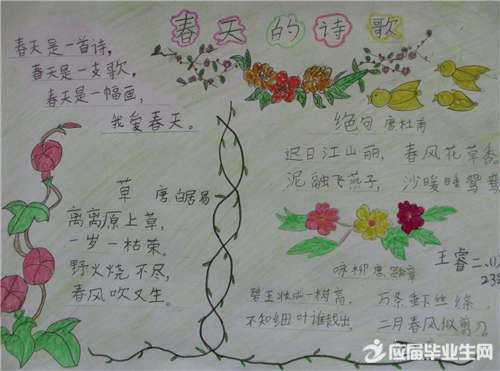 春天的诗歌
春天是一首诗，
春天是一支歌，
春天是一幅画，
我爱春天。
草
唐 白居易
离离原上草，
一岁一枯荣。
野火烧不尽，
春风吹又生。
绝句 唐 杜甫
迟日江山丽，春风花草香
泥融飞燕子，沙暖睡鸳鸯
王睿 二.(1)
23
咏柳 唐
碧玉妆成一树高，万条垂下丝绦，
不知细叶谁裁出，二月春风似剪刀
应届毕业生网